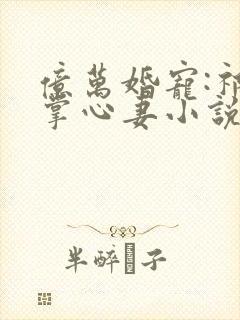 億萬婚寵:祁
掌心妻小說
半醉�子